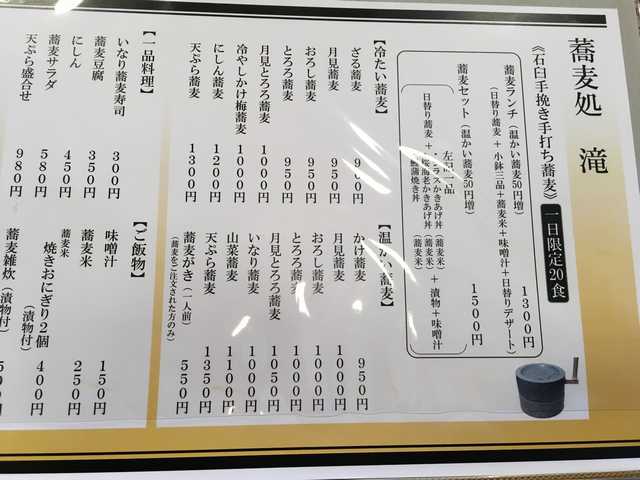 蕎麦処 滝
《石臼手挽き手打ち蕎麦》 一日限定20食
蕎麦ランチ(温かい蕎麦50円増) 1300円
(日替り蕎麦+小鉢三品+蕎麦米+味噌汁+日替りデザート)
蕎麦セット(温かい蕎麦50円増) 1500円
かきあげ丼(蕎麦米)
日替り蕎麦+桜海老かきあげ丼(蕎麦米)+漬物+味噌汁
蒲焼き丼(蕎麦米)
【冷たい蕎麦】
ざる蕎麦 900円
月見蕎麦 950円
おろし蕎麦 950円
とろろ蕎麦 950円
月見とろろ蕎麦 1000円
冷やしかけ梅蕎麦 1000円
にしん蕎麦 1200円
天ぷら蕎麦 1300円
【温かい蕎麦】
かけ蕎麦 950円
月見蕎麦 1000円
おろし蕎麦 1000円
とろろ蕎麦 1000円
月見とろろ蕎麦 1050円
いなり蕎麦 1000円
山菜蕎麦 1100円
天ぷら蕎麦 1350円
蕎麦がき(一人前) 550円
(蕎麦をご注文された方のみ)
【一品料理】
いなり蕎麦寿司 300円
蕎麦豆腐 350円
にしん 450円
蕎麦サラダ 580円
天ぷら盛合せ 980円
【ご飯物】
味噌汁 150円
蕎麦米 250円
蕎麦米
焼きおにぎり2個 400円
(漬物付)
蕎麦雑炊(漬物付)